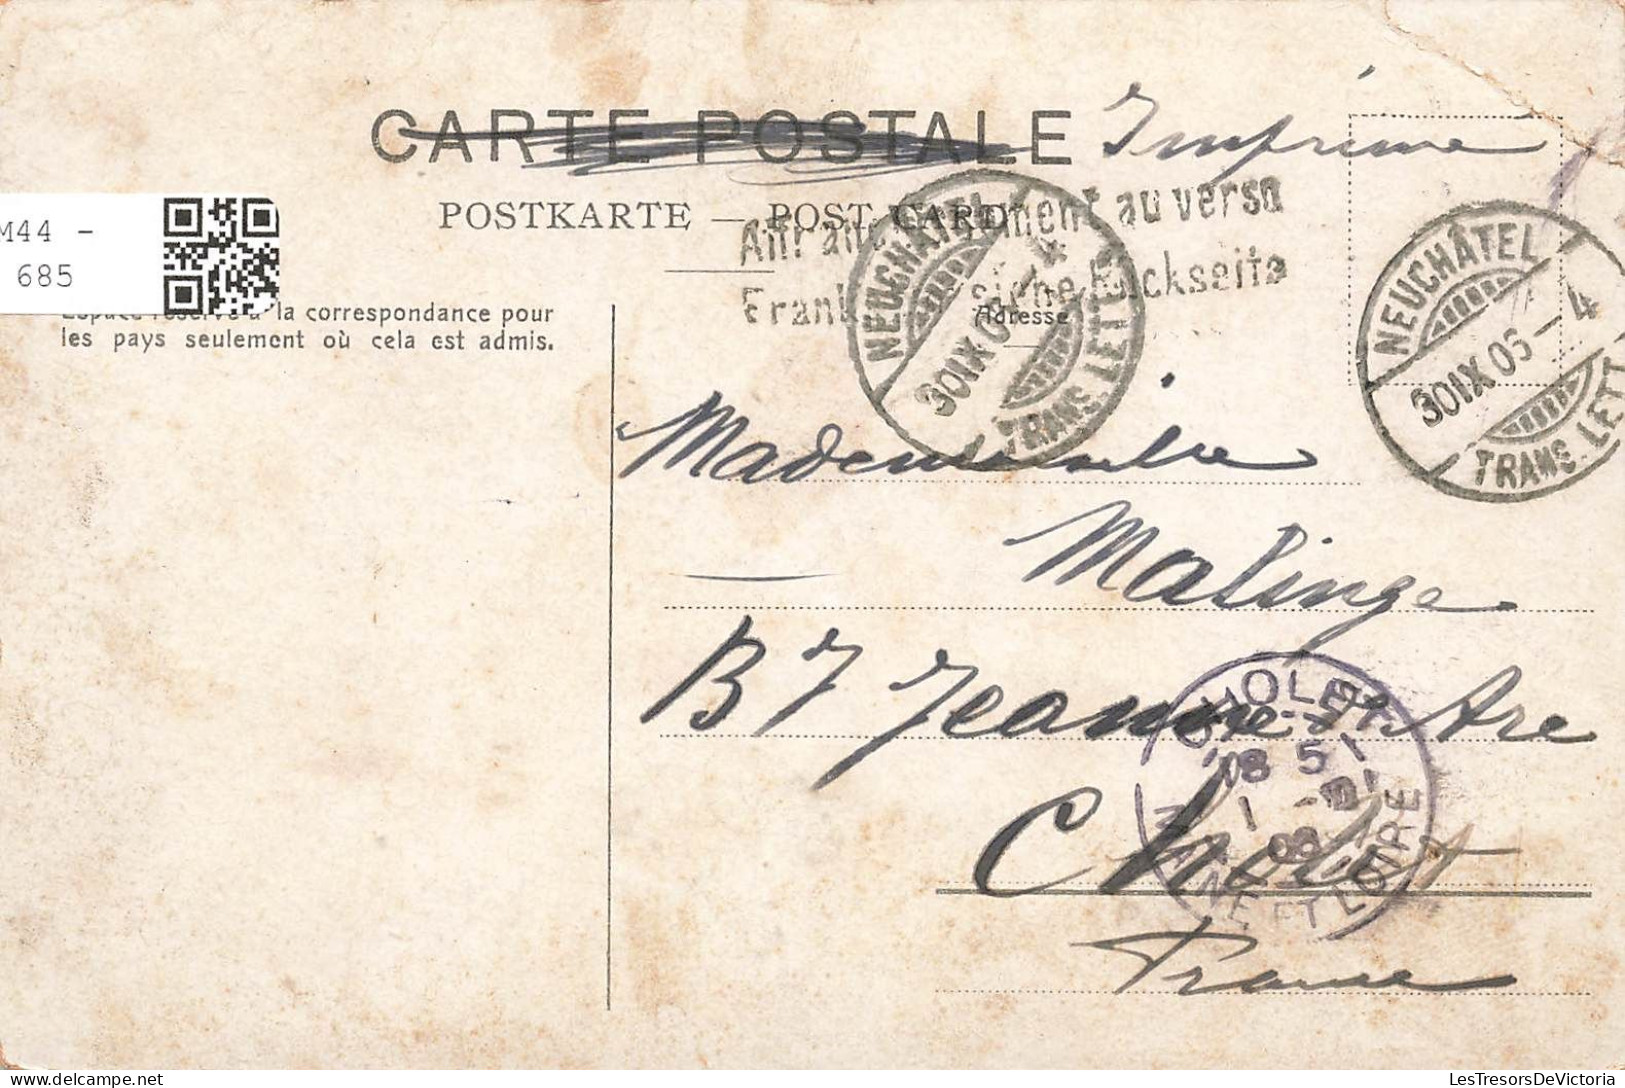 CARTE POSTALE Imprimé
POSTKARTE — POST CARD
Affranchissement au verso
Frankatur siehe Rückseite
M44 -
685
Espace réservé à la correspondance pour
les pays seulement où cela est admis.
Adresse
NEUCHÂTEL
30 IX 05 – 4
TRANS. LETT.
NEUCHÂTEL
30 IX 05 – 4
TRANS. LETT
Mademoiselle
Malinge
Bd Jeanne d'Arc
Cholet
France
CHOLET
18 51
1
MAINE ET LOIRE
LesTresorsDeVictoria